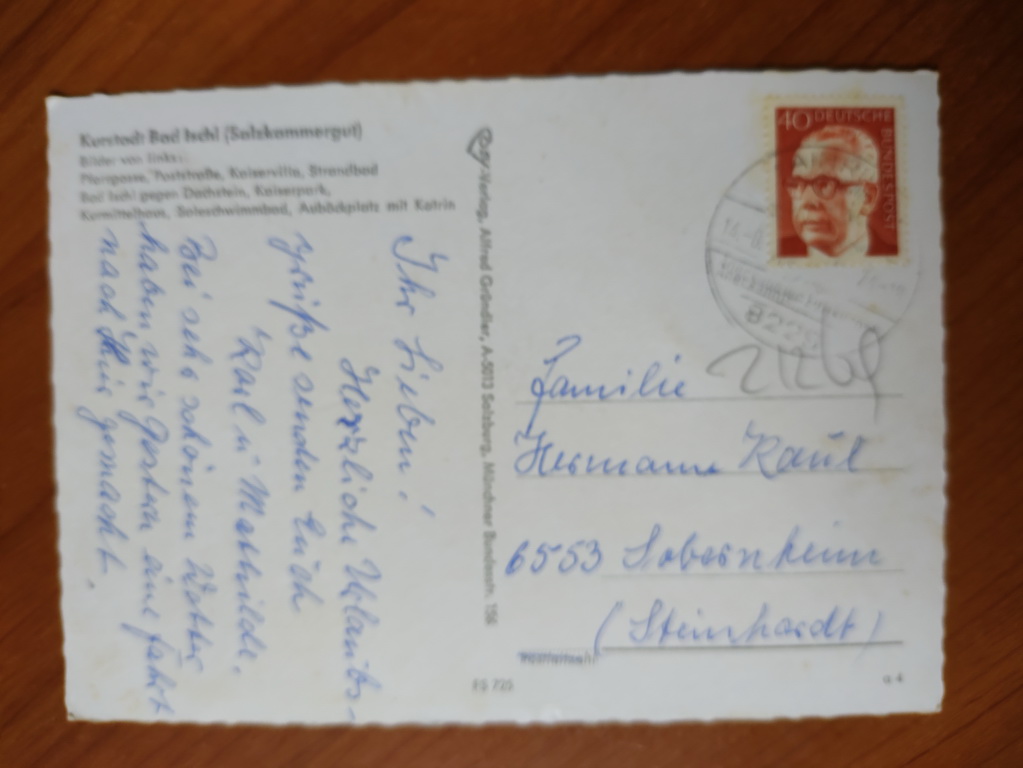 Kurstadt Bad Ischl (Salzkammergut)
Bilder von links:
Pfarrgasse, Poststraße, Kaiservilla, Strandbad
Bad Ischl gegen Dachstein, Kaiserpark,
Kurmittelhaus, Soleschwimmbad, Ausblickplatz mit Katrin
Ihr Lieben!
Herzliche Urlaubs-
grüße senden Euch
Karl u. Mathilde.
Bei sehr schönem Wetter
haben wir gestern eine Fahrt
nach hier gemacht.
Cosy-Verlag, Alfred Gründler, A-5013 Salzburg, Münchner Bundesstr. 156
40 DEUTSCHE
BUNDESPOST
822
Familie
Hermann Raul
6553 Sobernheim
(Steinhardt)
Postleitzahl
FS 725
a 4